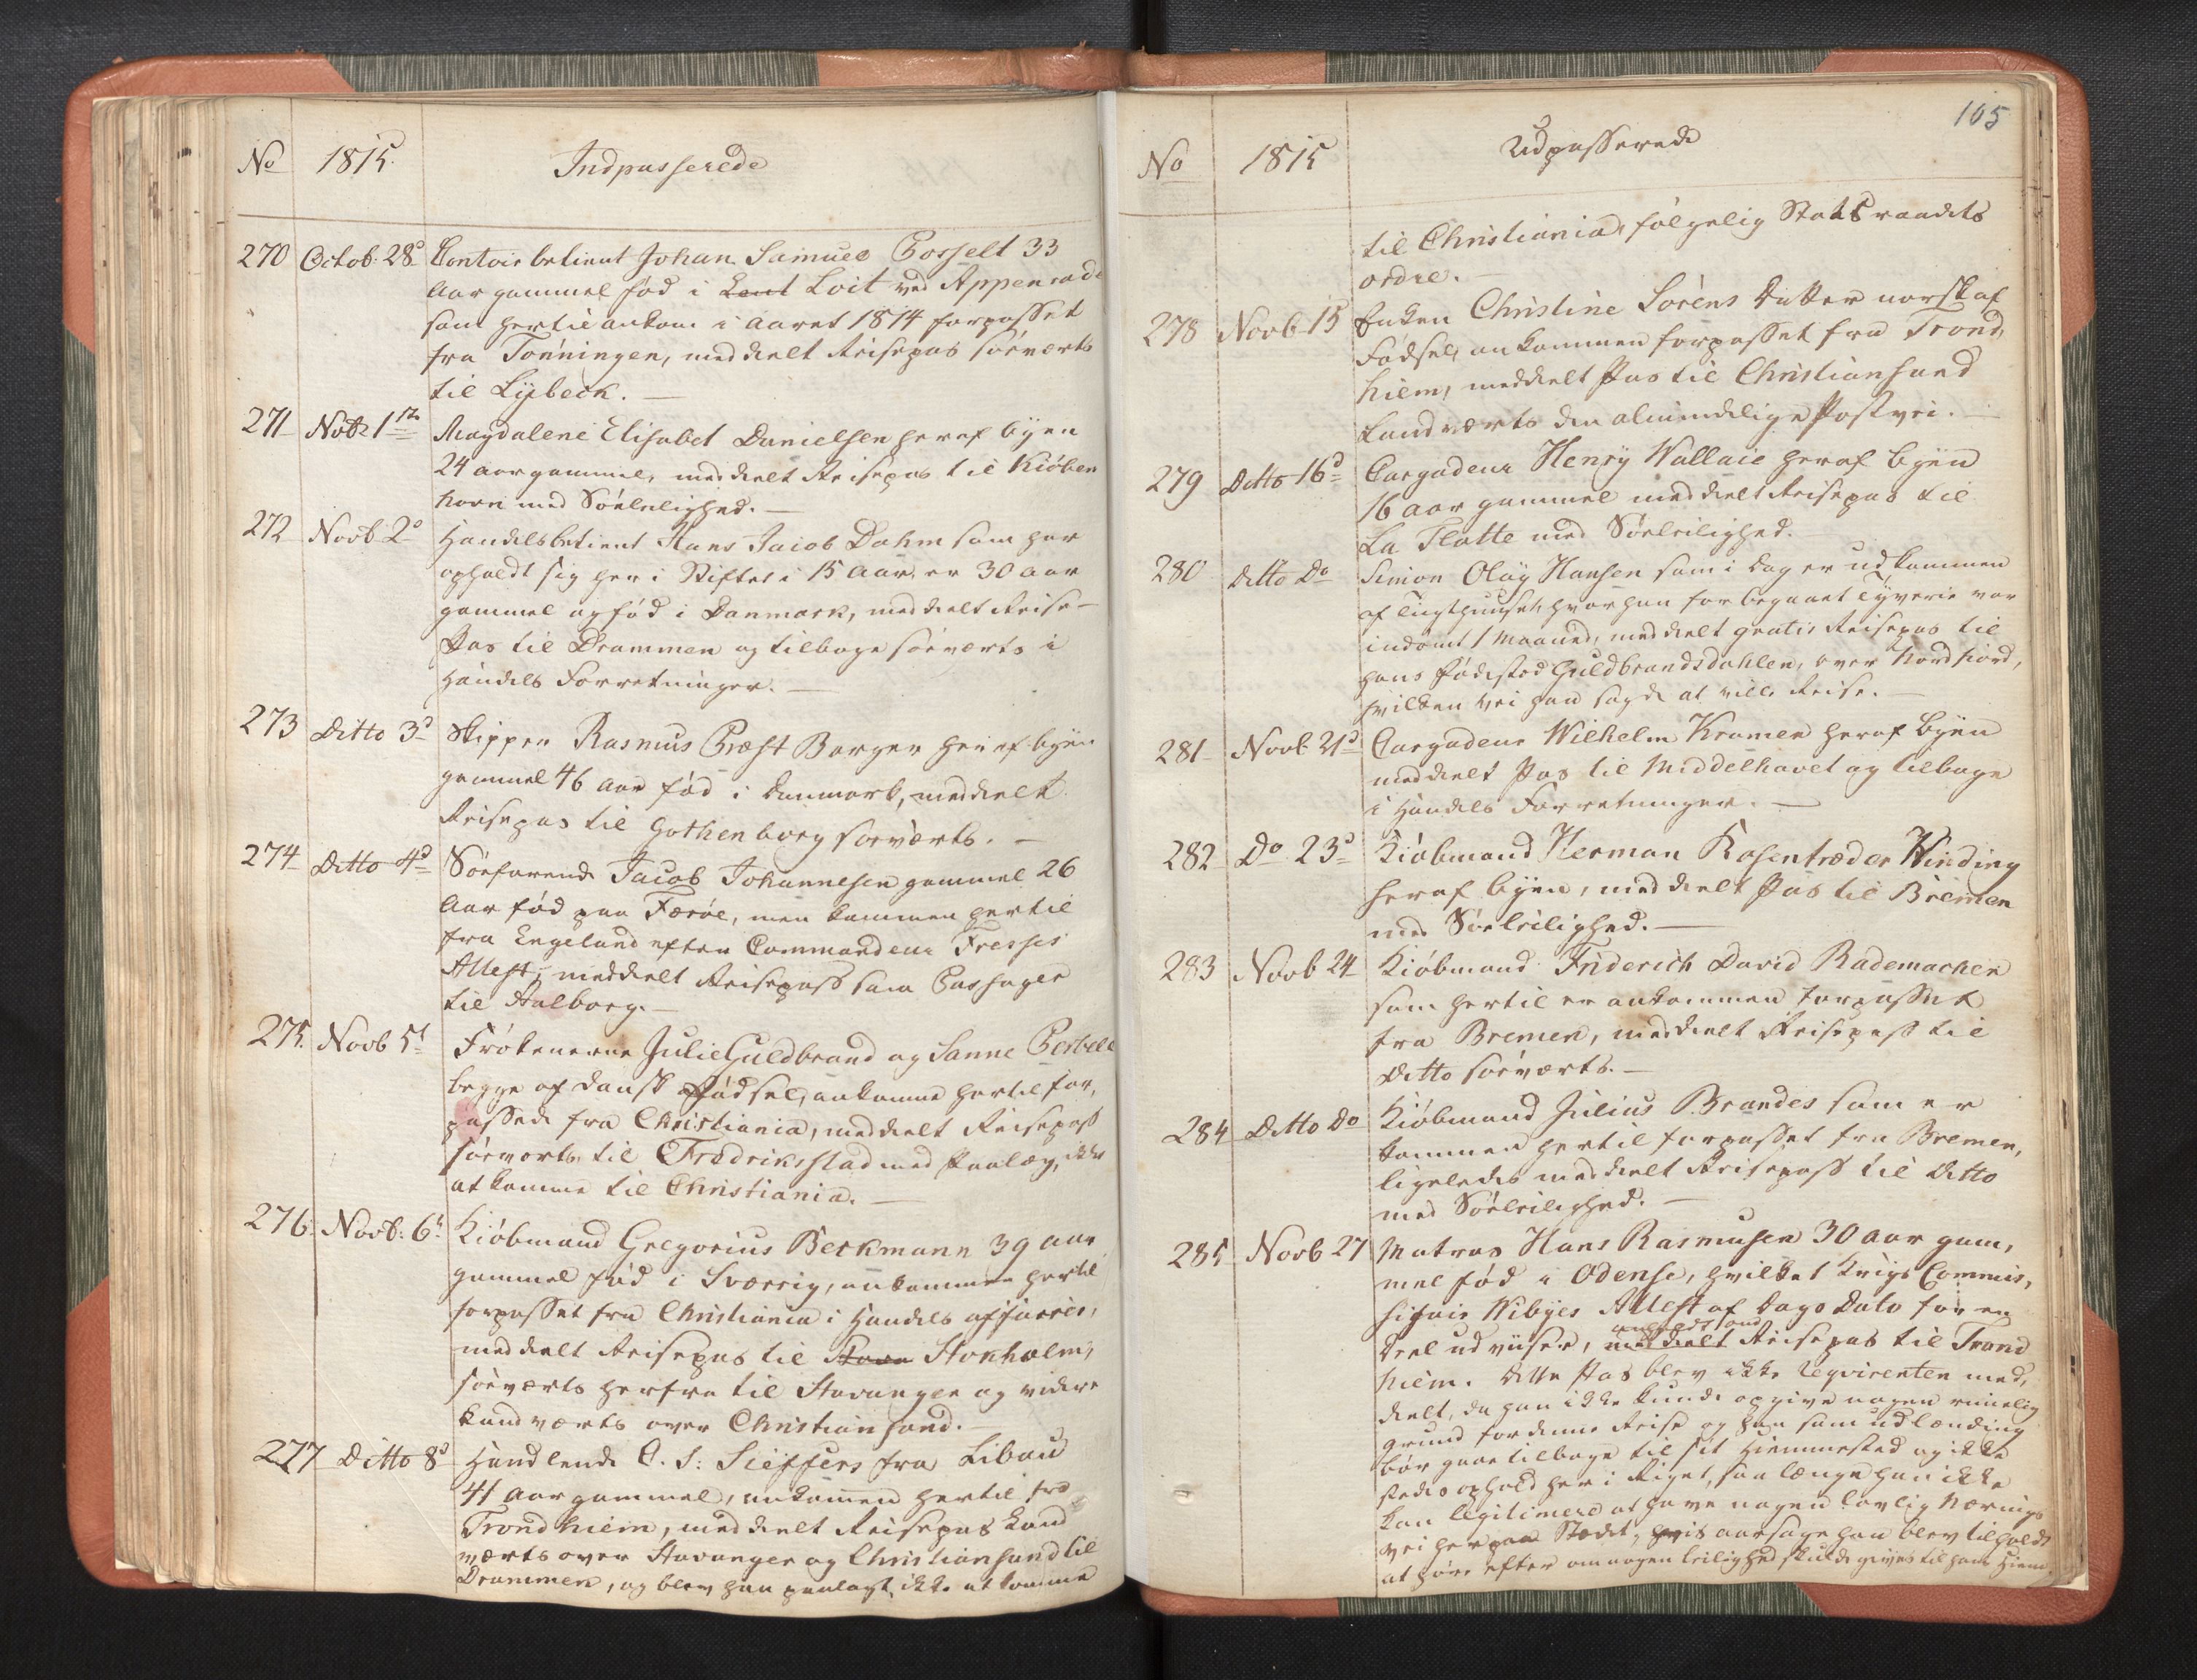 No 1815. Indpasserede
270 Octob: 28d Contoirbetient Johan Samuel Posselt 33
Aar gammel fød i Loit ved Appenrade
som hertil ankom i aaret 1814 forpasset
fra Tønningen, meddeelt Reisepas søeværts
til Lybeck. —
271 Novb: 1ste Magdalene Elisabet Danielsen her af byen
24 aar gammel, meddeelt Reisepas til Kiøben
havn med Søeleilighed. —
272 Novb 2d Handelsbetient Hans Jacob Dahm som har
opholdt sig her i Stiftet i 15 Aar, er 30 aar
gammel og fød i Danmark, meddeelt Reise-
Pas til Drammen og tilbage søeværts i
Handels Forretninger. —
273 Ditto 3d Skipper Rasmus Præst Borger her af byen
gammel 46 aar fød i Danmark, meddeelt
Reisepas til Gothenborg søeværts. —
274 Ditto 4d Søefarende Jacob Johannesen gammel 26
Aar fød paa Færøe, men kommen hertil
fra Engeland efter Commandeur Fresses
Attest, meddeelt Reisepass som Passager
til Aalborg. —
275. Novb 5t Frøkenerne Julie Guldbrand og Sanne
begge af dansk Fødsel, ankomne hertil for,
passede fra Christiania, meddeelt Reisepass
søeværts til Fredriksstad med Paalæg, ikke
at komme til Christiania. —
276: Novb: 6t Kiøbmand Gregorius Beckmann 39 aar
gammel fød i Sverrig, ankommen hertil
forpasset fra Christiania i Handels affairer,
meddeelt Reisepas til Stokholm,
søeværts herfra til Stavanger og videre
Landværts over Christiansand. —
277 Ditto 8d Handlende C. S: Sieffers fra Libau
41 Aar gammel, ankommen hertil fra
Trondhiem, meddeelt Reisepas Land
værts over Stavanger og Christiansand til
Drammen, og blev ham paalagt ikke at komme
105
No 1815 Udpasserede
til Christiania, følgelig Statsraadets
ordre. —
278 Novb 15 Enken Christine Sørens Datter norsk af
Fødsel, ankommen forpasset fra Trond,
hiem, meddeelt Pas til Christiansund
Landværts den almindelige Postvei. —
279 Ditto 16d Cargadeur Henry Wallaie her af byen
16 aar gammel meddeelt Reisepas til
La Flotte med Søeleilighed.
280 Ditto Do Simon Olay Hansen som i dag er udkommen
af Tugthuuset, hvor han for begaaet Tyverie var
indømt 1 Maaned, meddeelt gratis Reisepas til
hans fødested Guldbrandsdahlen, over Nordfiord,
hvilken Vei han sagde at ville Reise. —
281 Novb 21d Cargadeur Wilhelm Kramer her af byen
meddeelt Pas til Middelhavet og tilbage
i Handels Forretninger. —
282 Do 23d Kiøbmand Herman Rosentræder Winding
her af byen, meddeelt Pas til Bremen
med Søeleilighed. —
283 Novb 24 Kiøbmand Friderich David Rademacher
som hertil er ankommen forpasset
fra Bremen, meddeelt Reisepass til
Ditto søeværts. —
284 Ditto Do Kiøbmand Julius Brandes som er
kommen hertil forpasset fra Bremen,
ligeledes meddeelt Reisepass til Ditto
med Søeleilighed. —
285 Novb 27 Matros Hans Rasmusen 30 aar gam,
mel fød i Odense, hvilket Krigs Commis,
sair Wibyes Attest af Dags Dato for en
Deel udviiser, meddeelt Reisepas til Trond
hiem. Dette Pas blev ikke Reqvirenten med,
deelt, da han ikke kunde opgive nogen rimelig
grund for denne Reise og han som udlænding
bør gaae tilbage til sit Hiemmested og ikke
stedes ophold her i Riget, saa længe han ikke
kan legitimere at have nogen lovlig Nærings
vei her paa Stedet, hvis aarsage han blev tilholdt
at høre efter om nogen leilighed skulde gives til hans Hiem